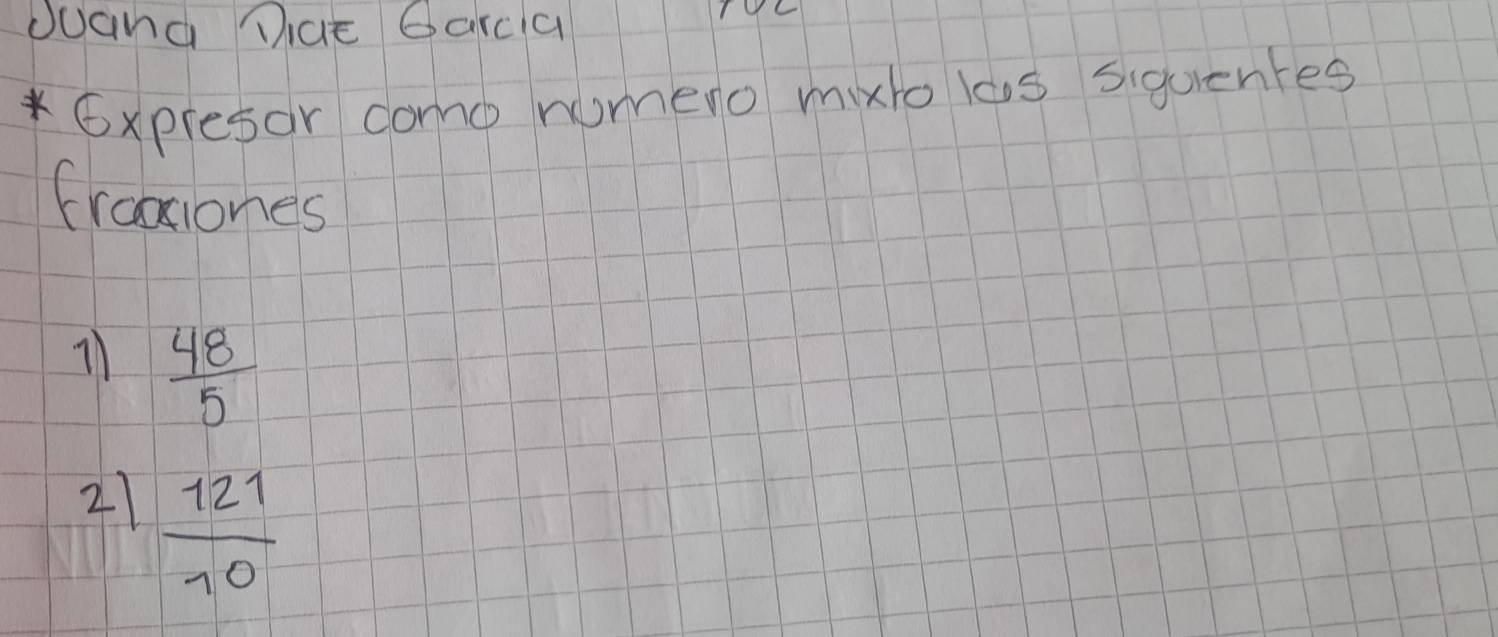 Juana Diaz Garcia
* Expresar como numero mixto las siguientes
fracciones
1) 48/5
2) 121/10